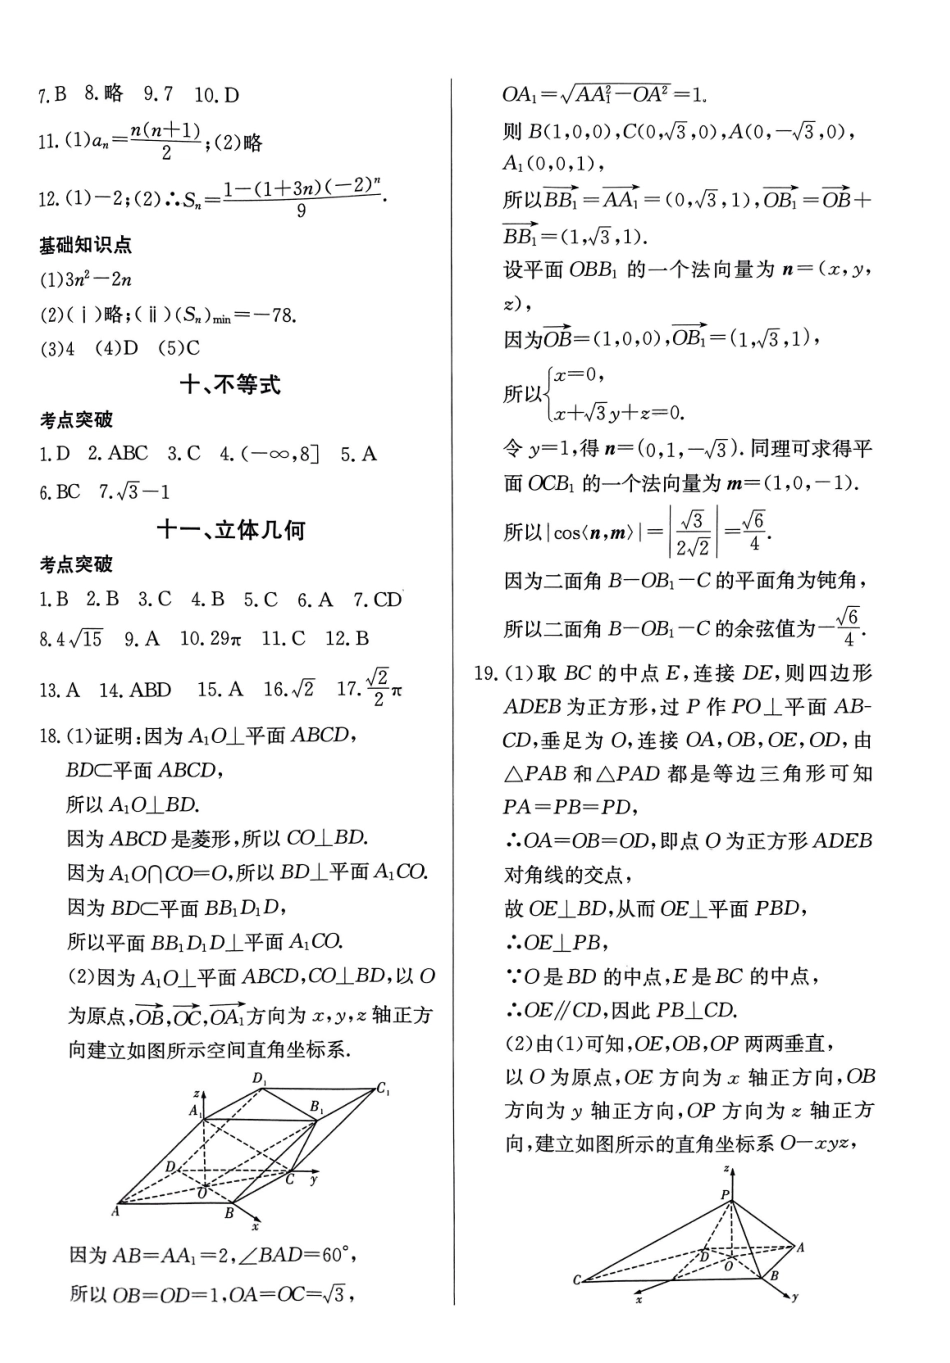 7. B 8. 略 9. 7 10. D
11. (1)aₙ=n(n+1)/2;(2)略
12. (1)−2;(2)∴Sₙ=[1−(1+3n)(−2)ⁿ]/9.
基础知识点
(1)3n²−2n
(2)(ⅰ)略;(ⅱ)(Sₙ)min=−78.
(3)4 (4)D (5)C
十、不等式
考点突破
1. D 2. ABC 3. C 4. (−∞,8] 5. A
6. BC 7. √3−1
十一、立体几何
考点突破
1. B 2. B 3. C 4. B 5. C 6. A 7. CD
8. 4√15 9. A 10. 29π 11. C 12. B
13. A 14. ABD 15. A 16. √2 17. √2/2 π
18. (1)证明:因为 A₁O⊥平面 ABCD,
BD⊂平面 ABCD,
所以 A₁O⊥BD.
因为 ABCD 是菱形,所以 CO⊥BD.
因为 A₁O∩CO=O,所以 BD⊥平面 A₁CO.
因为 BD⊂平面 BB₁D₁D,
所以平面 BB₁D₁D⊥平面 A₁CO.
(2)因为 A₁O⊥平面 ABCD,CO⊥BD,以 O
为原点,OB→,OC→,OA₁→方向为 x,y,z 轴正方
向建立如图所示空间直角坐标系.
D₁
C₁
z
A₁
B₁
D
C
y
O
A
B
x
因为 AB=AA₁=2,∠BAD=60°,
所以 OB=OD=1,OA=OC=√3,
OA₁=√(AA₁²−OA²)=1.
则 B(1,0,0),C(0,√3,0),A(0,−√3,0),
A₁(0,0,1),
所以BB₁→=AA₁→=(0,√3,1),OB₁→=OB→+
BB₁→=(1,√3,1).
设平面 OBB₁ 的一个法向量为 n=(x,y,
z),
因为OB→=(1,0,0),OB₁→=(1,√3,1),
所以{x=0,
x+√3y+z=0.
令 y=1,得 n=(0,1,−√3). 同理可求得平
面 OCB₁ 的一个法向量为 m=(1,0,−1).
所以|cos⟨n,m⟩|=|√3/(2√2)|=√6/4.
因为二面角 B−OB₁−C 的平面角为钝角,
所以二面角 B−OB₁−C 的余弦值为−√6/4.
19. (1)取 BC 的中点 E,连接 DE,则四边形
ADEB 为正方形,过 P 作 PO⊥平面 AB-
CD,垂足为 O,连接 OA,OB,OE,OD,由
△PAB 和△PAD 都是等边三角形可知
PA=PB=PD,
∴OA=OB=OD,即点 O 为正方形 ADEB
对角线的交点,
故 OE⊥BD,从而 OE⊥平面 PBD,
∴OE⊥PB,
∵O 是 BD 的中点,E 是 BC 的中点,
∴OE∥CD,因此 PB⊥CD.
(2)由(1)可知,OE,OB,OP 两两垂直,
以 O 为原点,OE 方向为 x 轴正方向,OB
方向为 y 轴正方向,OP 方向为 z 轴正方
向,建立如图所示的直角坐标系 O−xyz,
z
P
D
A
O
C
B
x
y